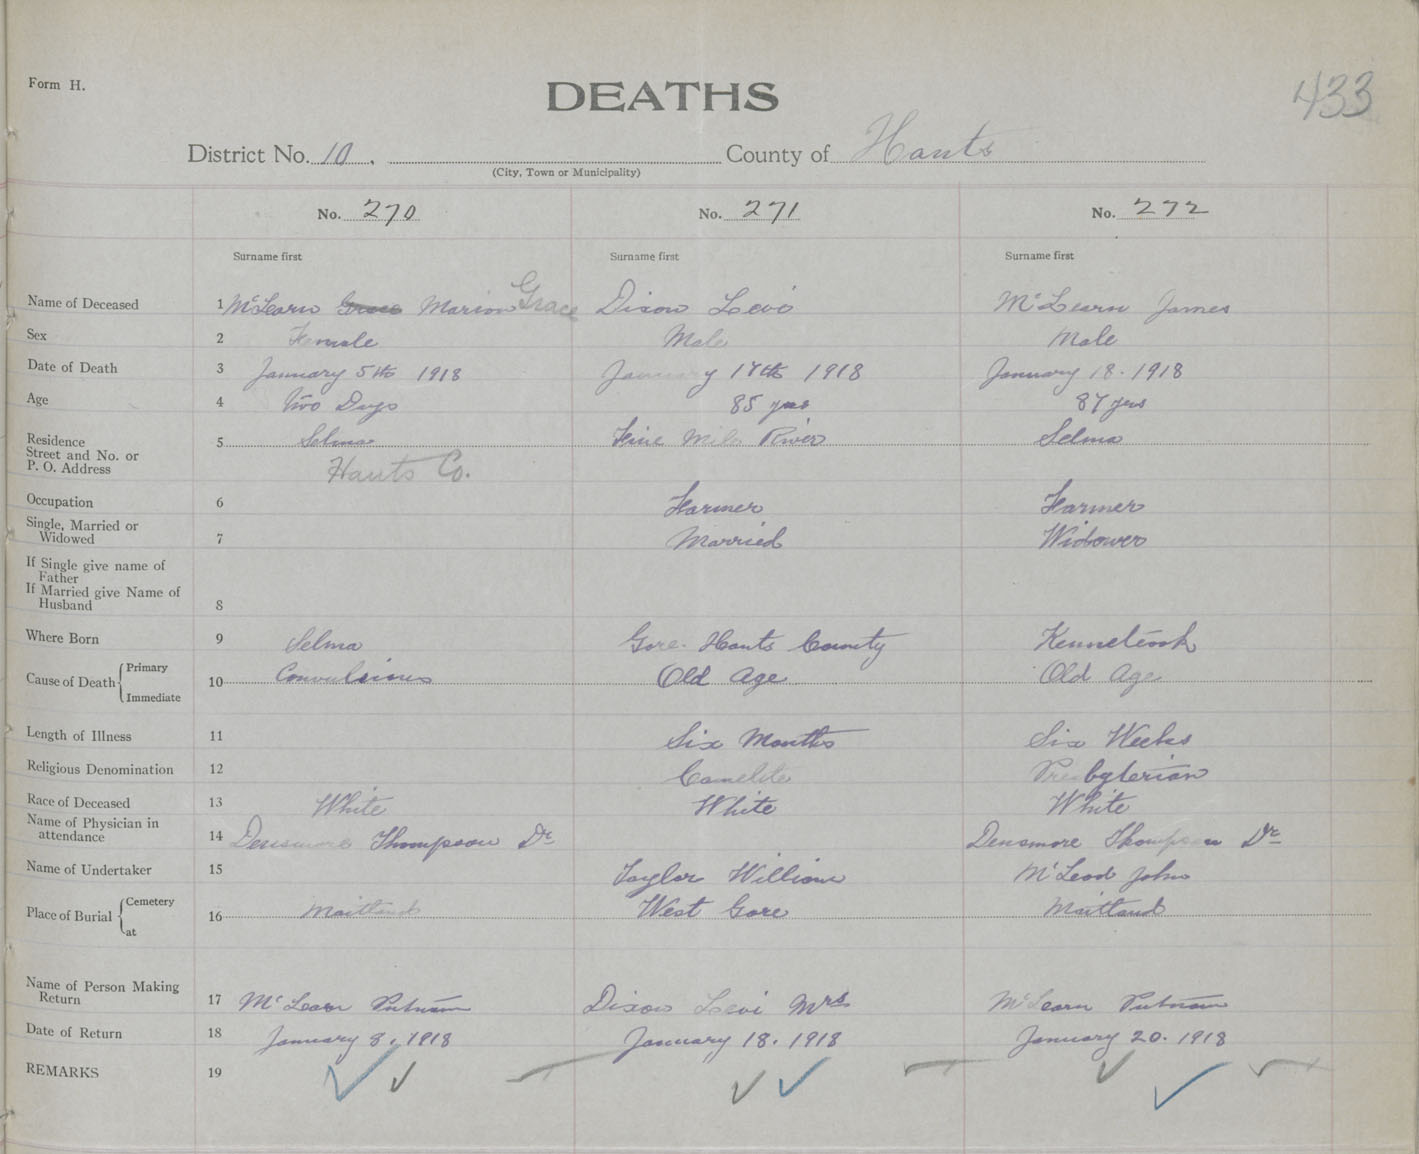 Form H.
DEATHS
433
District No. 10. County of Hants
(City, Town or Municipality)
No. 270 No. 271 No. 272
Surname first Surname first Surname first
Name of Deceased 1 McLearn Grace Marion Grace Dixon Levi McLearn James
Sex 2 Female Male Male
Date of Death 3 January 5th 1918 January 17th 1918 January 18. 1918
Age 4 Two Days 85 yrs 87 yrs
Residence
Street and No. or
P. O. Address
5 Selma Five Mile River Selma
Hants Co.
Occupation 6 Farmer Farmer
Single, Married or
Widowed 7 Married Widower
If Single give name of
Father
If Married give Name of
Husband 8
Where Born 9 Selma Gore. Hants County Kennetcook
Cause of Death { Primary
Immediate
10 Convulsions Old Age Old Age
Length of Illness 11 Six Months Six Weeks
Religious Denomination 12 Camelite Presbyterian
Race of Deceased 13 White White White
Name of Physician in
attendance 14 Densmore Thompson Dr Densmore Thompson Dr
Name of Undertaker 15 Taylor William McLeod John
Place of Burial { Cemetery
at
16 Maitland West Gore Maitland
Name of Person Making
Return 17 McLearn Putnam Dixon Levi Mrs McLearn Putnam
Date of Return 18 January 8. 1918 January 18. 1918 January 20. 1918
REMARKS 19